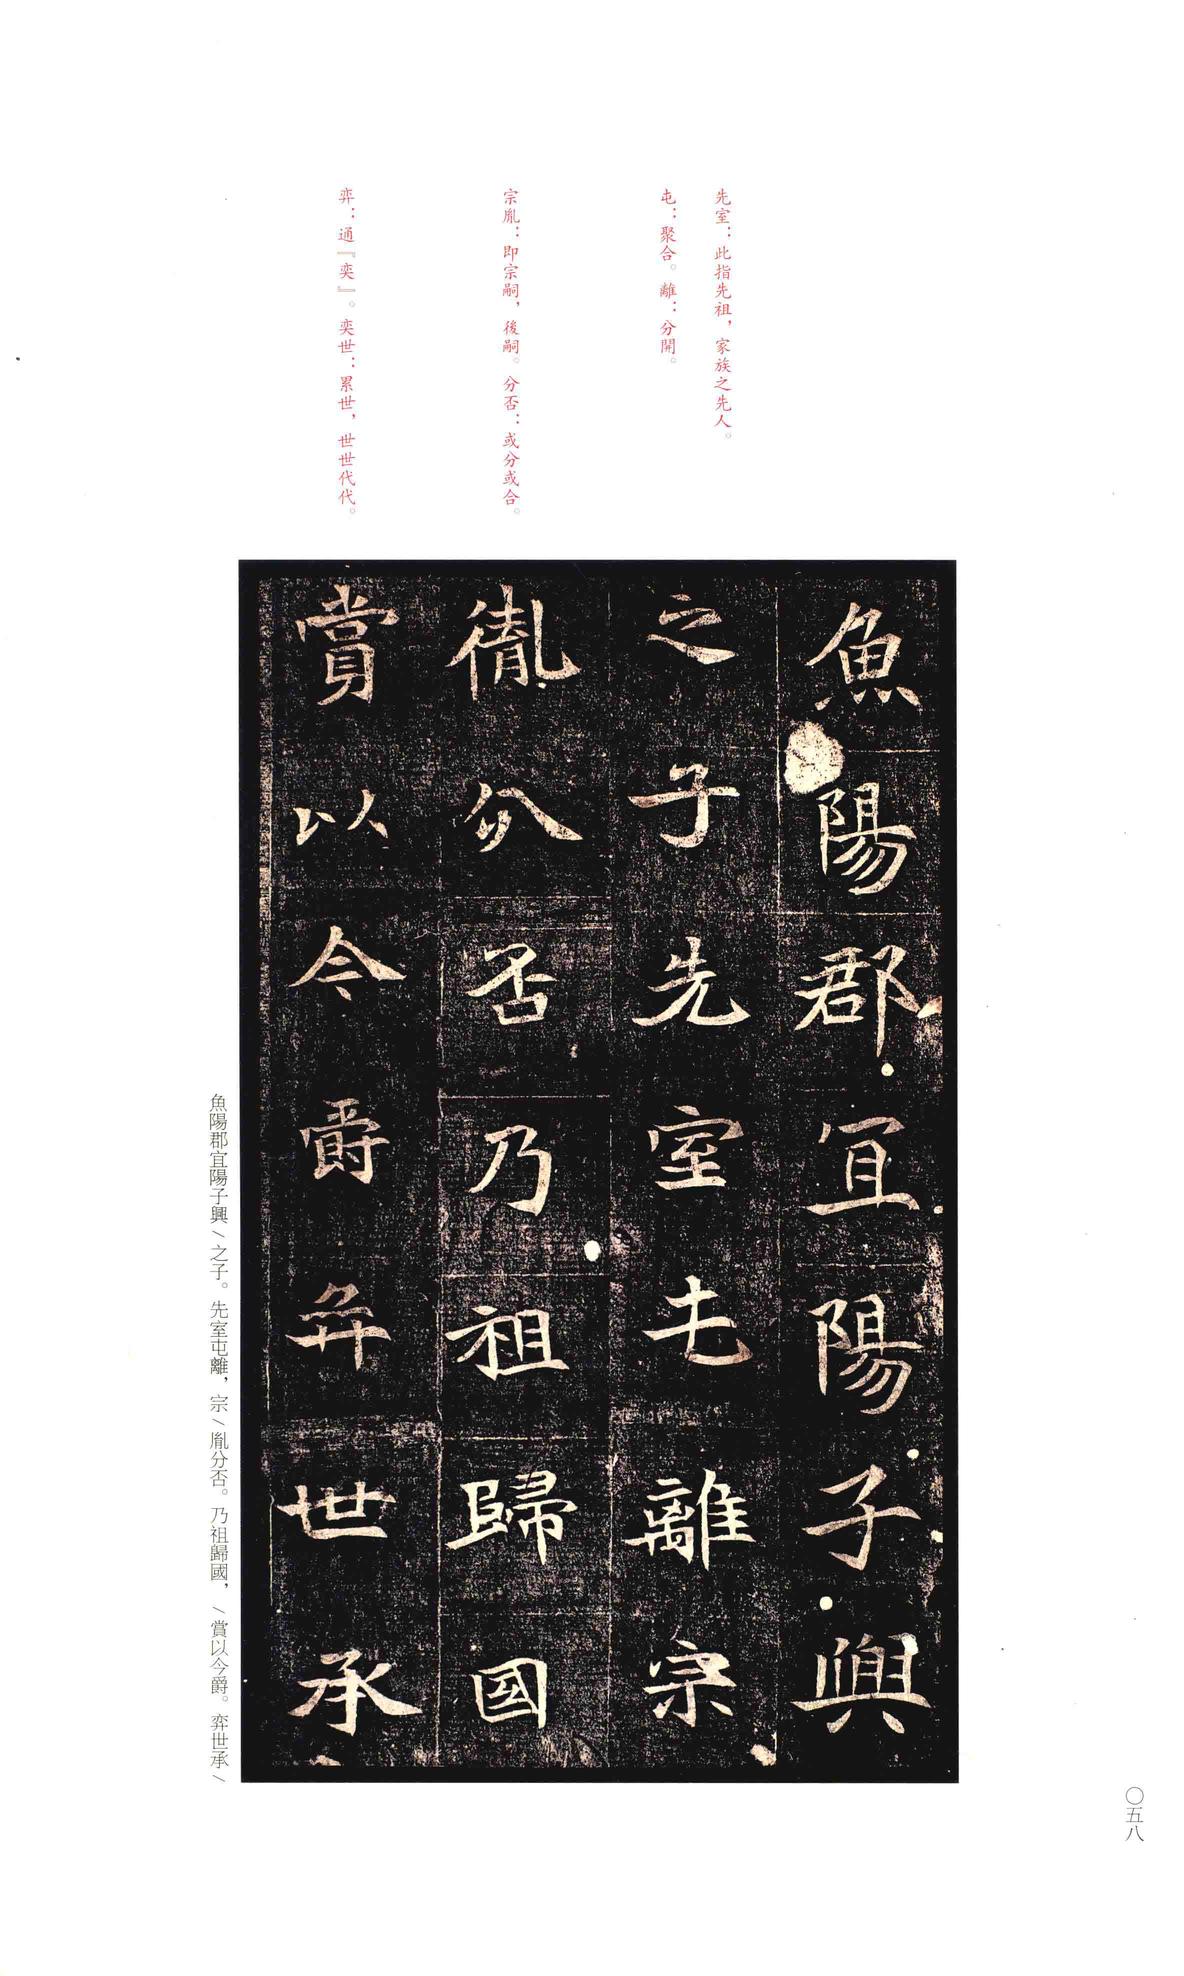 先室：此指先祖，家族之先人。
屯：聚合。離：分開。
宗胤：即宗嗣，後嗣。分否：或分或合。
弈：通『奕』。奕世：累世，世世代代。
魚陽郡宜陽子興
之子先室屯離宗
胤分否乃祖歸國
賞以今爵弈世承
魚陽郡宜陽子興\之子。先室屯離，宗\胤分否。乃祖歸國，\賞以今爵。弈世承\
〇五八